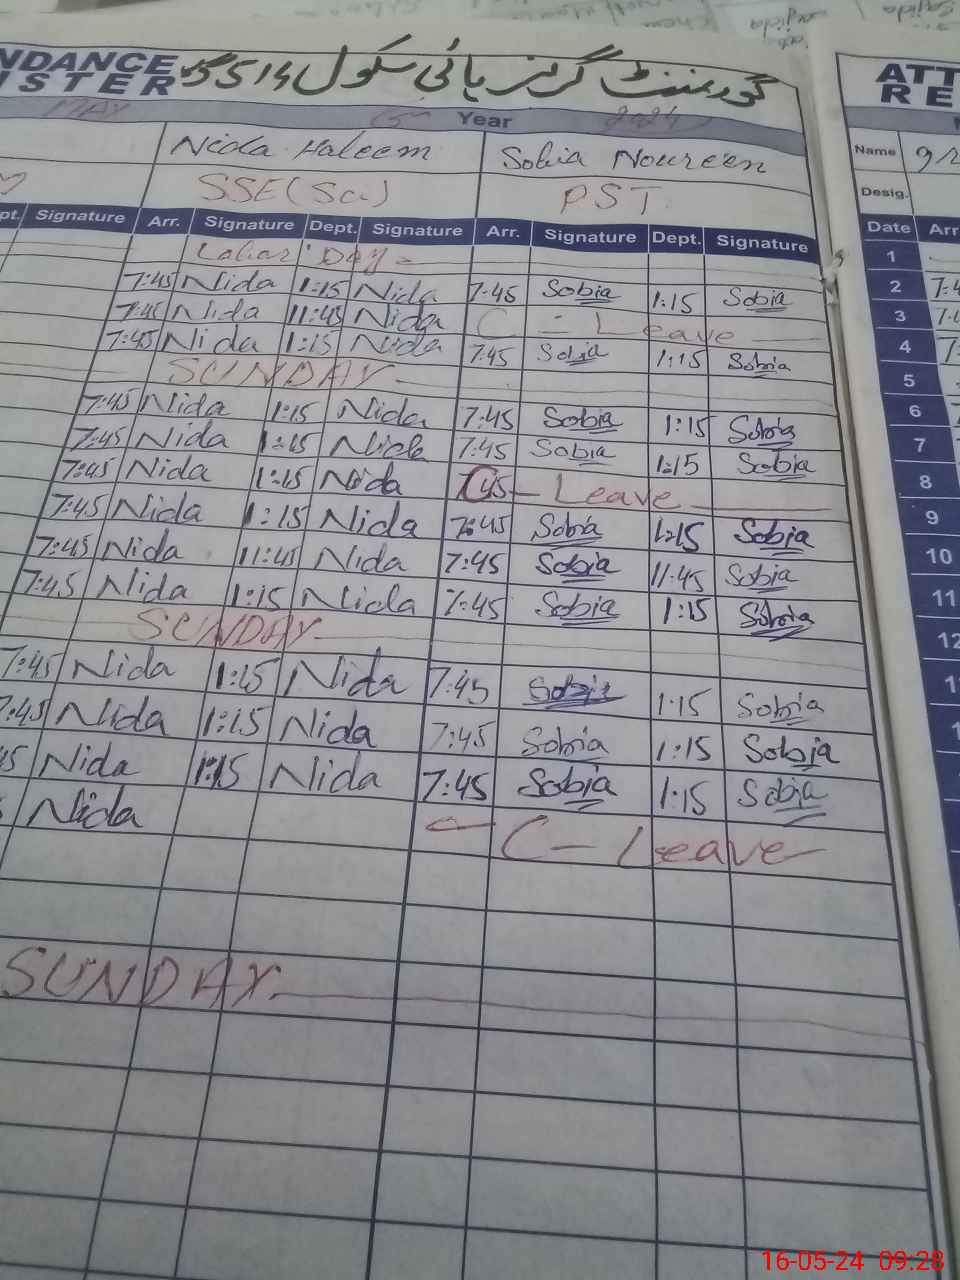 NDANCE گورنمنٹ گرلز ہائی سکول 514 گ ب ATT
ISTER RE
MAY Year 2024
Nida Haleem Sobia Noureen Name
SSE (Sci) PST Desig.
pt. Signature Arr. Signature Dept. Signature Arr. Signature Dept. Signature Date Arr
Labar Day 1
7:45 Nida 1:15 Nida 7:45 Sobia 1:15 Sobia 2
7:45 Nida 11:45 Nida C - Leave 3
7:45 Nida 1:15 Nida 7:45 Sobia 1:15 Sobia 4
SUNDAY 5
7:45 Nida 1:15 Nida 7:45 Sobia 1:15 Sobia 6
7:45 Nida 1:15 Nida 7:45 Sobia 1:15 Sobia 7
7:45 Nida 1:15 Nida C - Leave 8
7:45 Nida 1:15 Nida 7:45 Sobia 1:15 Sobia 9
7:45 Nida 11:45 Nida 7:45 Sobia 11:45 Sobia 10
7:45 Nida 1:15 Nida 7:45 Sobia 1:15 Sobia 11
SUNDAY 12
7:45 Nida 1:15 Nida 7:45 Sobia 1:15 Sobia
7:45 Nida 1:15 Nida 7:45 Sobia 1:15 Sobia
45 Nida 1:15 Nida 7:45 Sobia 1:15 Sobia
Nida C - Leave
SUNDAY
16-05-24 09:28